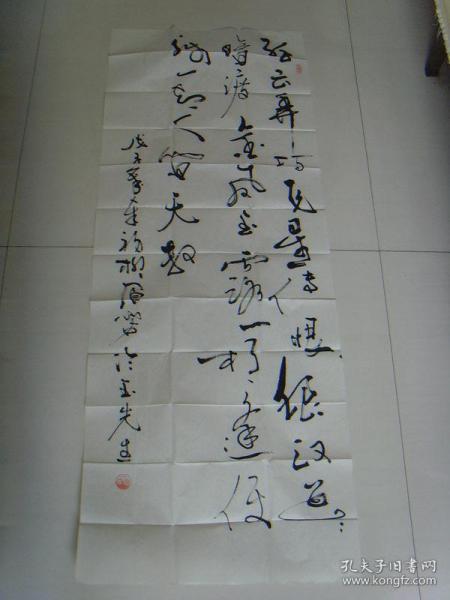 纤云弄巧飞星传恨银汉迢〻
暗渡金风玉露一相逢便
胜却人间无数
戊子 先生
孔夫子旧书网
www.kongfz.com